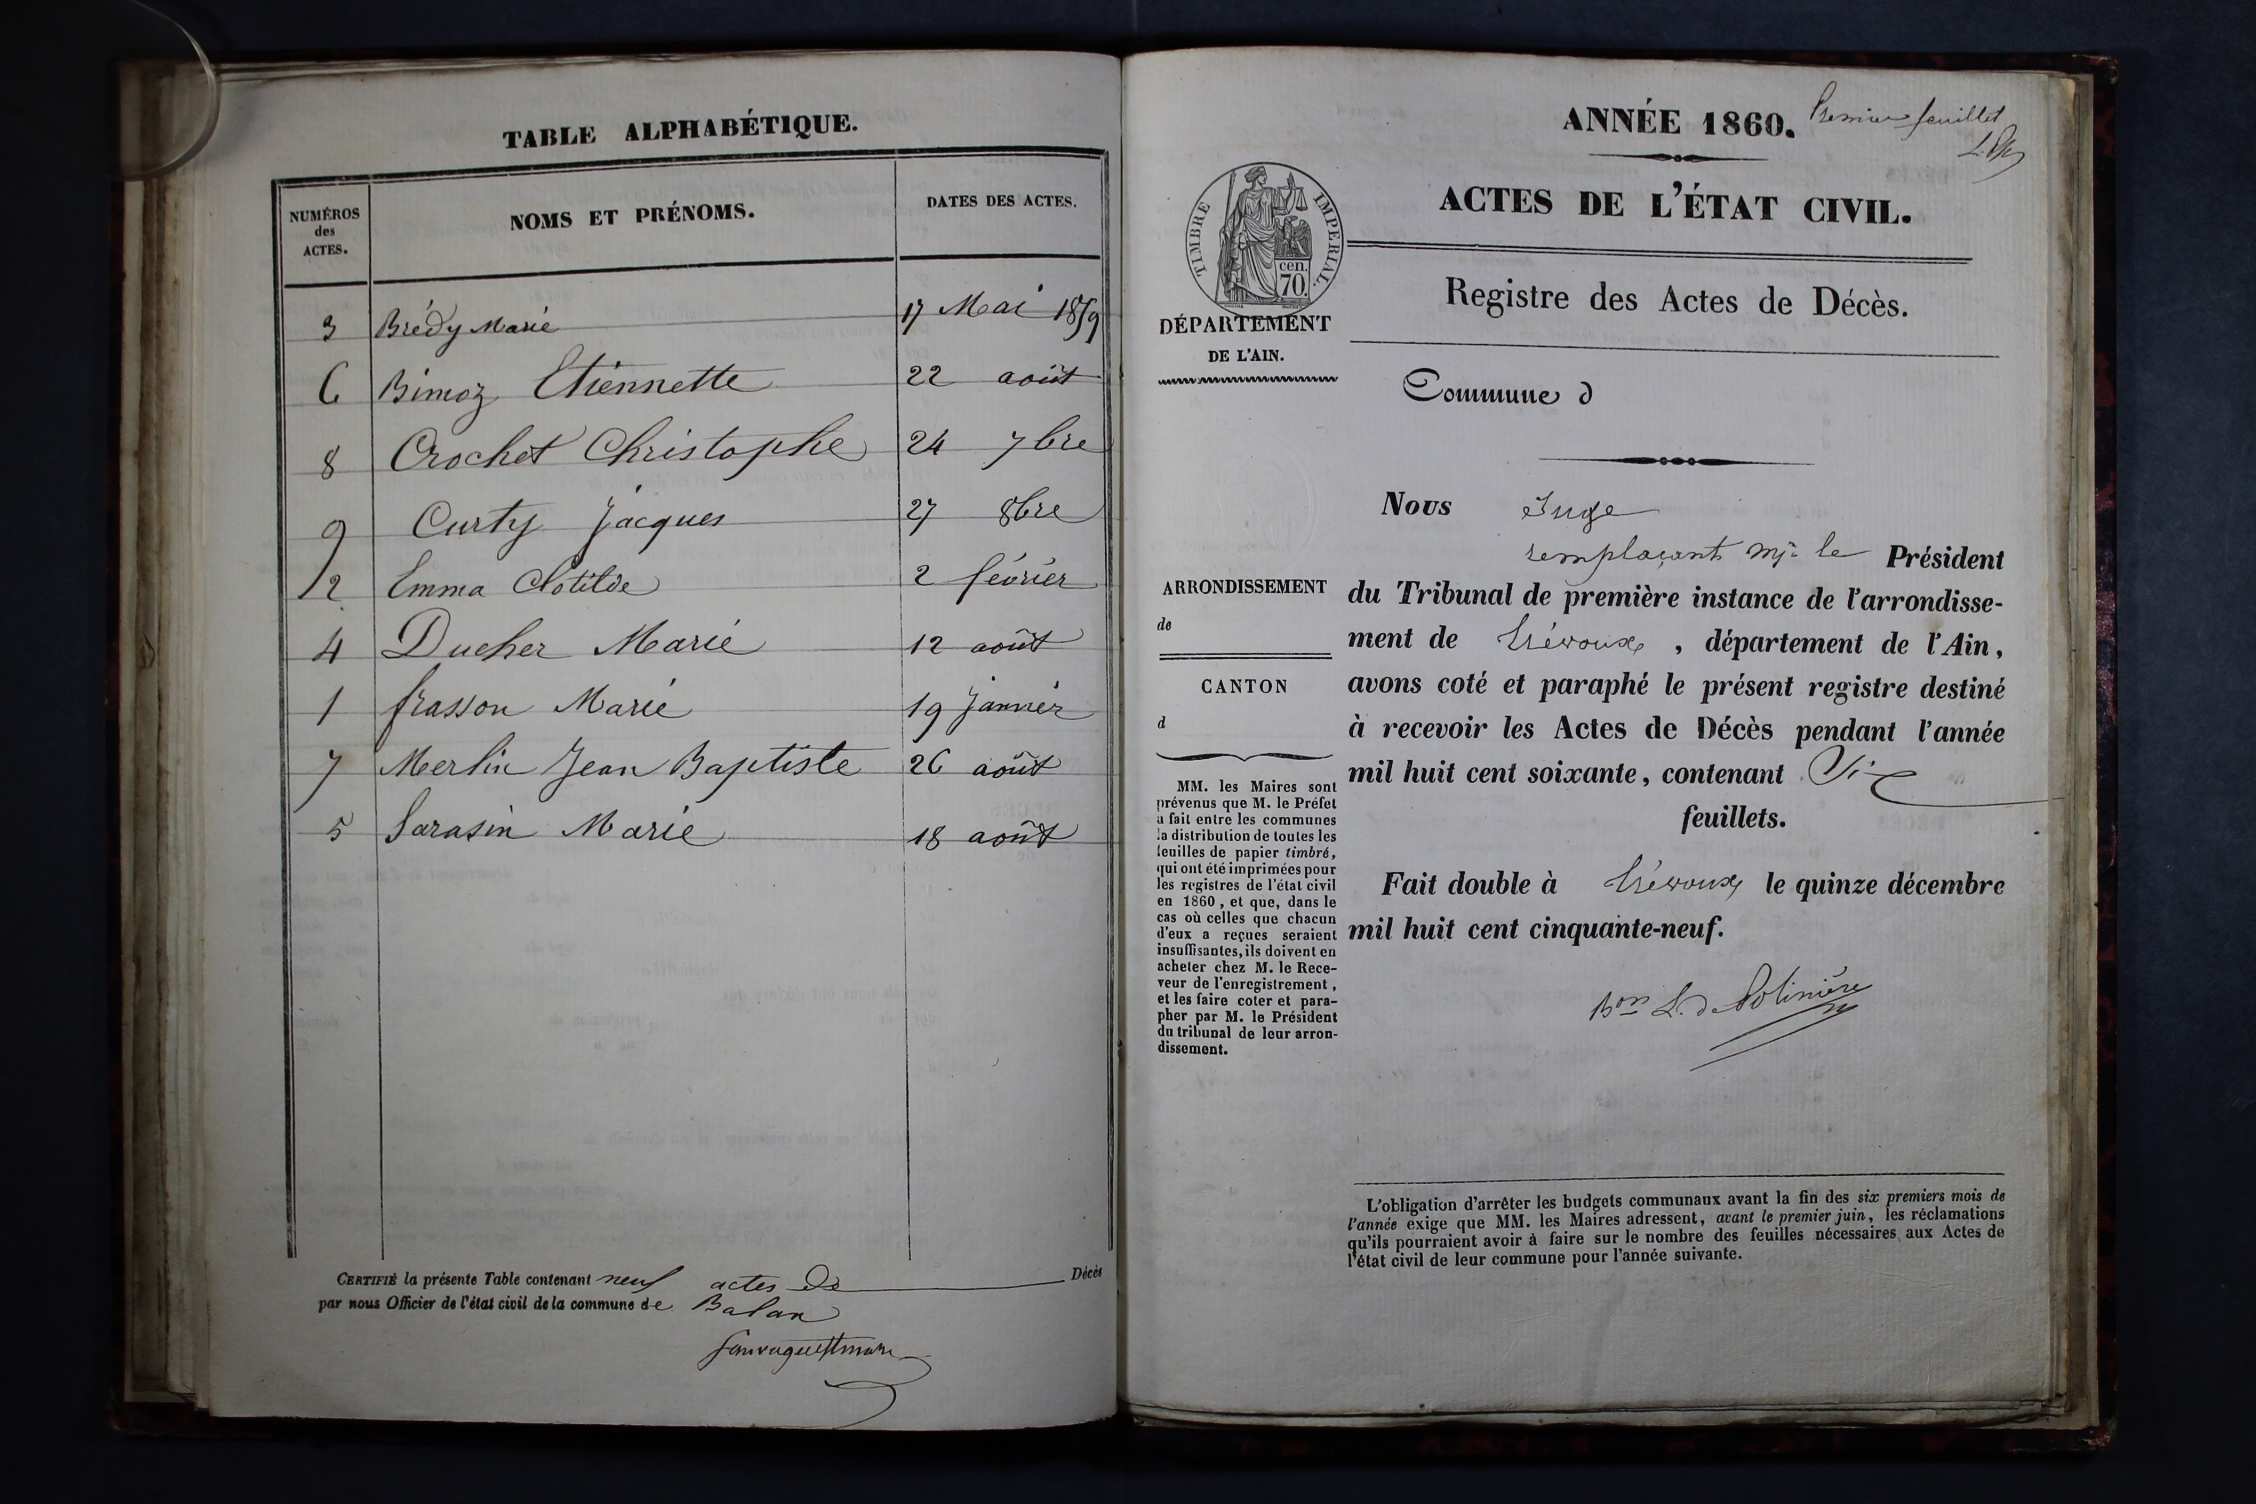 TABLE ALPHABÉTIQUE.
NUMÉROS des ACTES.
NOMS ET PRÉNOMS.
DATES DES ACTES.
3 Brédy Marie 17 Mai 1859
6 Bimoz Etiennette 22 août
8 Crochet Christophe 24 7bre
9 Curty Jacques 27 8bre
2 Emma Clotilde 2 février
4 Ducher Marie 12 août
1 frasson Marie 19 janvier
7 Merlin Jean Baptiste 26 août
5 Sarasin Marie 18 août
CERTIFIÉ la présente Table contenant neuf actes de Décès
par nous Officier de l'état civil de la commune de Balan
ANNÉE 1860.
Premier feuillet
ACTES DE L'ÉTAT CIVIL.
TIMBRE IMPERIAL.
cen.
70.
DÉPARTEMENT
DE L'AIN.
Registre des Actes de Décès.
Commune d
Nous Juge
remplaçant mr le Président
du Tribunal de première instance de l'arrondisse-
ment de Trévoux, département de l'Ain,
avons coté et paraphé le présent registre destiné
à recevoir les Actes de Décès pendant l'année
mil huit cent soixante, contenant Six
feuillets.
Fait double à Trévoux le quinze décembre
mil huit cent cinquante-neuf.
Bon L. de Polinière
ARRONDISSEMENT
de
CANTON
d
MM. les Maires sont
prévenus que M. le Préfet
a fait entre les communes
la distribution de toutes les
feuilles de papier timbré,
qui ont été imprimées pour
les registres de l'état civil
en 1860, et que, dans le
cas où celles que chacun
d'eux a reçues seraient
insuffisantes, ils doivent en
acheter chez M. le Rece-
veur de l'enregistrement,
et les faire coter et para-
pher par M. le Président
du tribunal de leur arron-
dissement.
L'obligation d'arrêter les budgets communaux avant la fin des six premiers mois de
l'année exige que MM. les Maires adressent, avant le premier juin, les réclamations
qu'ils pourraient avoir à faire sur le nombre des feuilles nécessaires aux Actes de
l'état civil de leur commune pour l'année suivante.